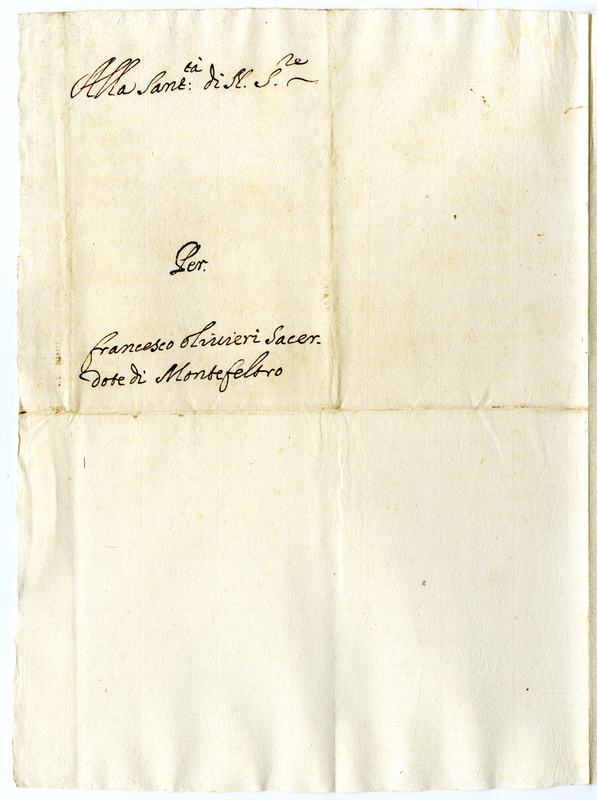 Alla Sant:tà di N. S.re
Per.
francesco oliuieri Sacer.
dote di Montefeltro